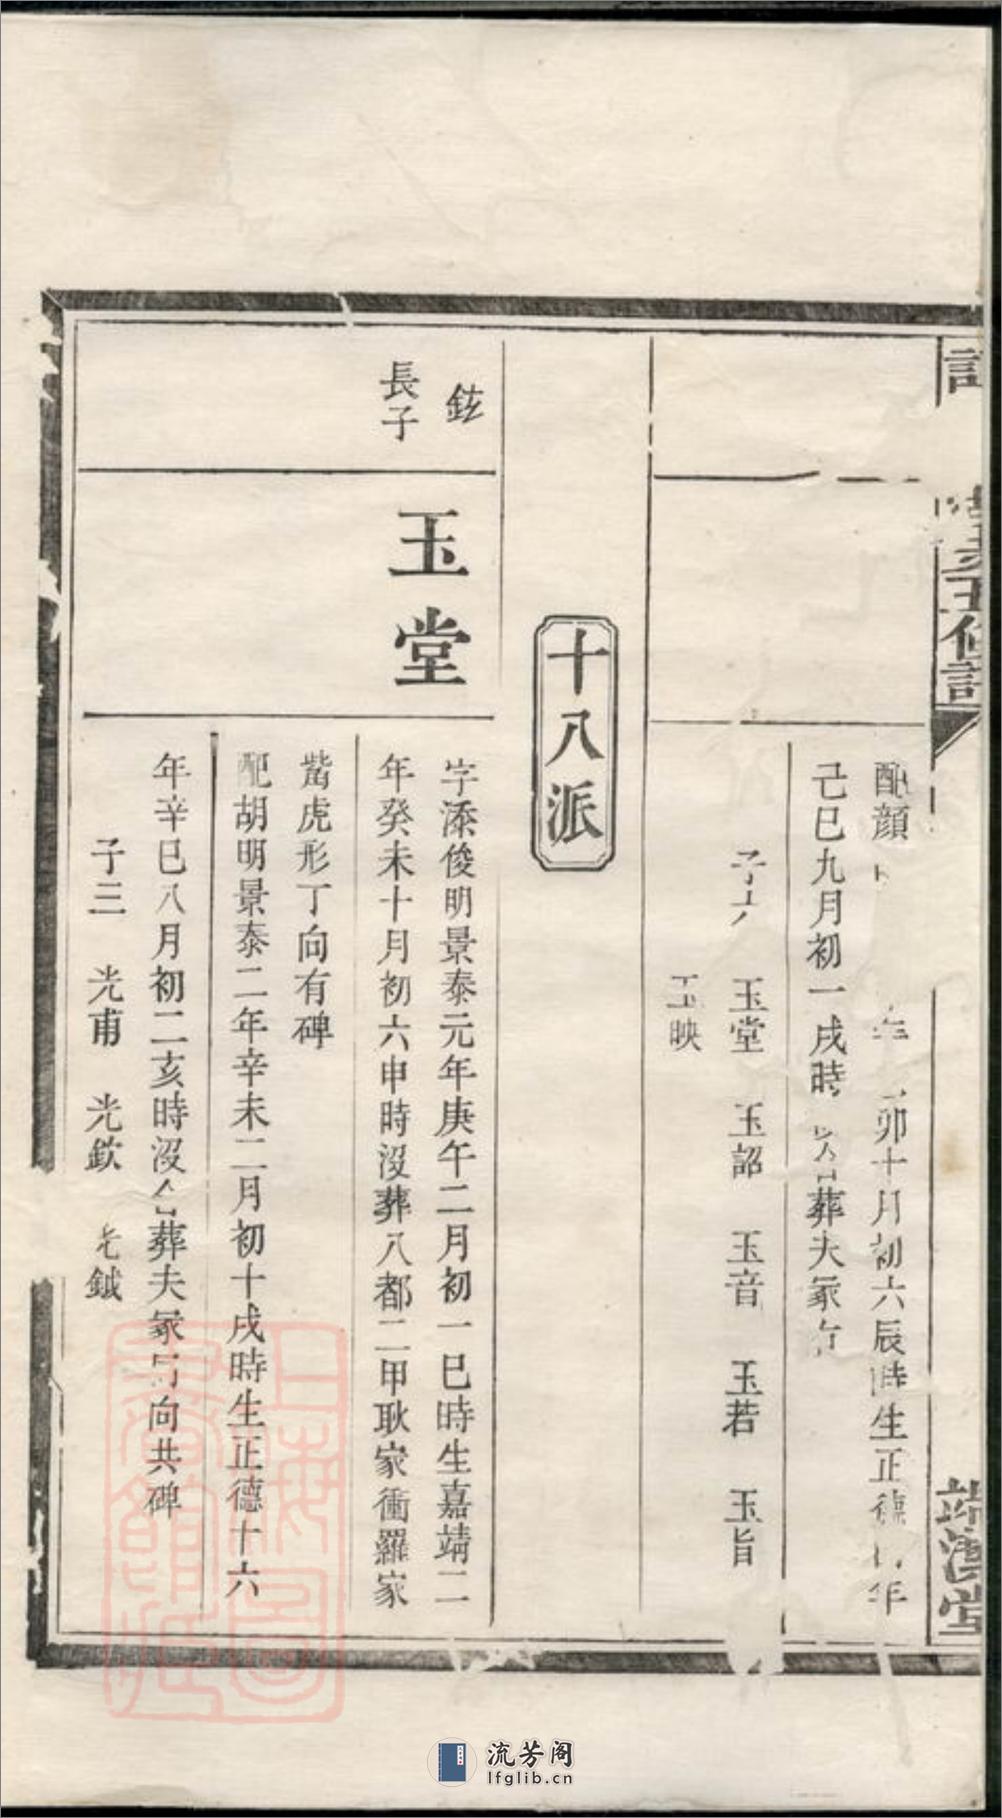 五修
靖漢堂
配顏
年
卯十月初六辰時生正德
年
己巳九月初一戌時
葬夫冢
子六 玉堂 玉詔 玉音 玉若 玉旨
玉映
十八派
鉉
長子
玉堂
字添俊明景泰元年庚午二月初一巳時生嘉靖二
年癸未十月初六申時沒葬八都二甲耿家衝羅家
嘴虎形丁向有碑
配胡明景泰二年辛未二月初十戌時生正德十六
年辛巳八月初二亥時沒合葬夫冢
向共碑
子三 光甫 光欽 光鉞
上海圖書館藏
流芳阁
lfglib.cn